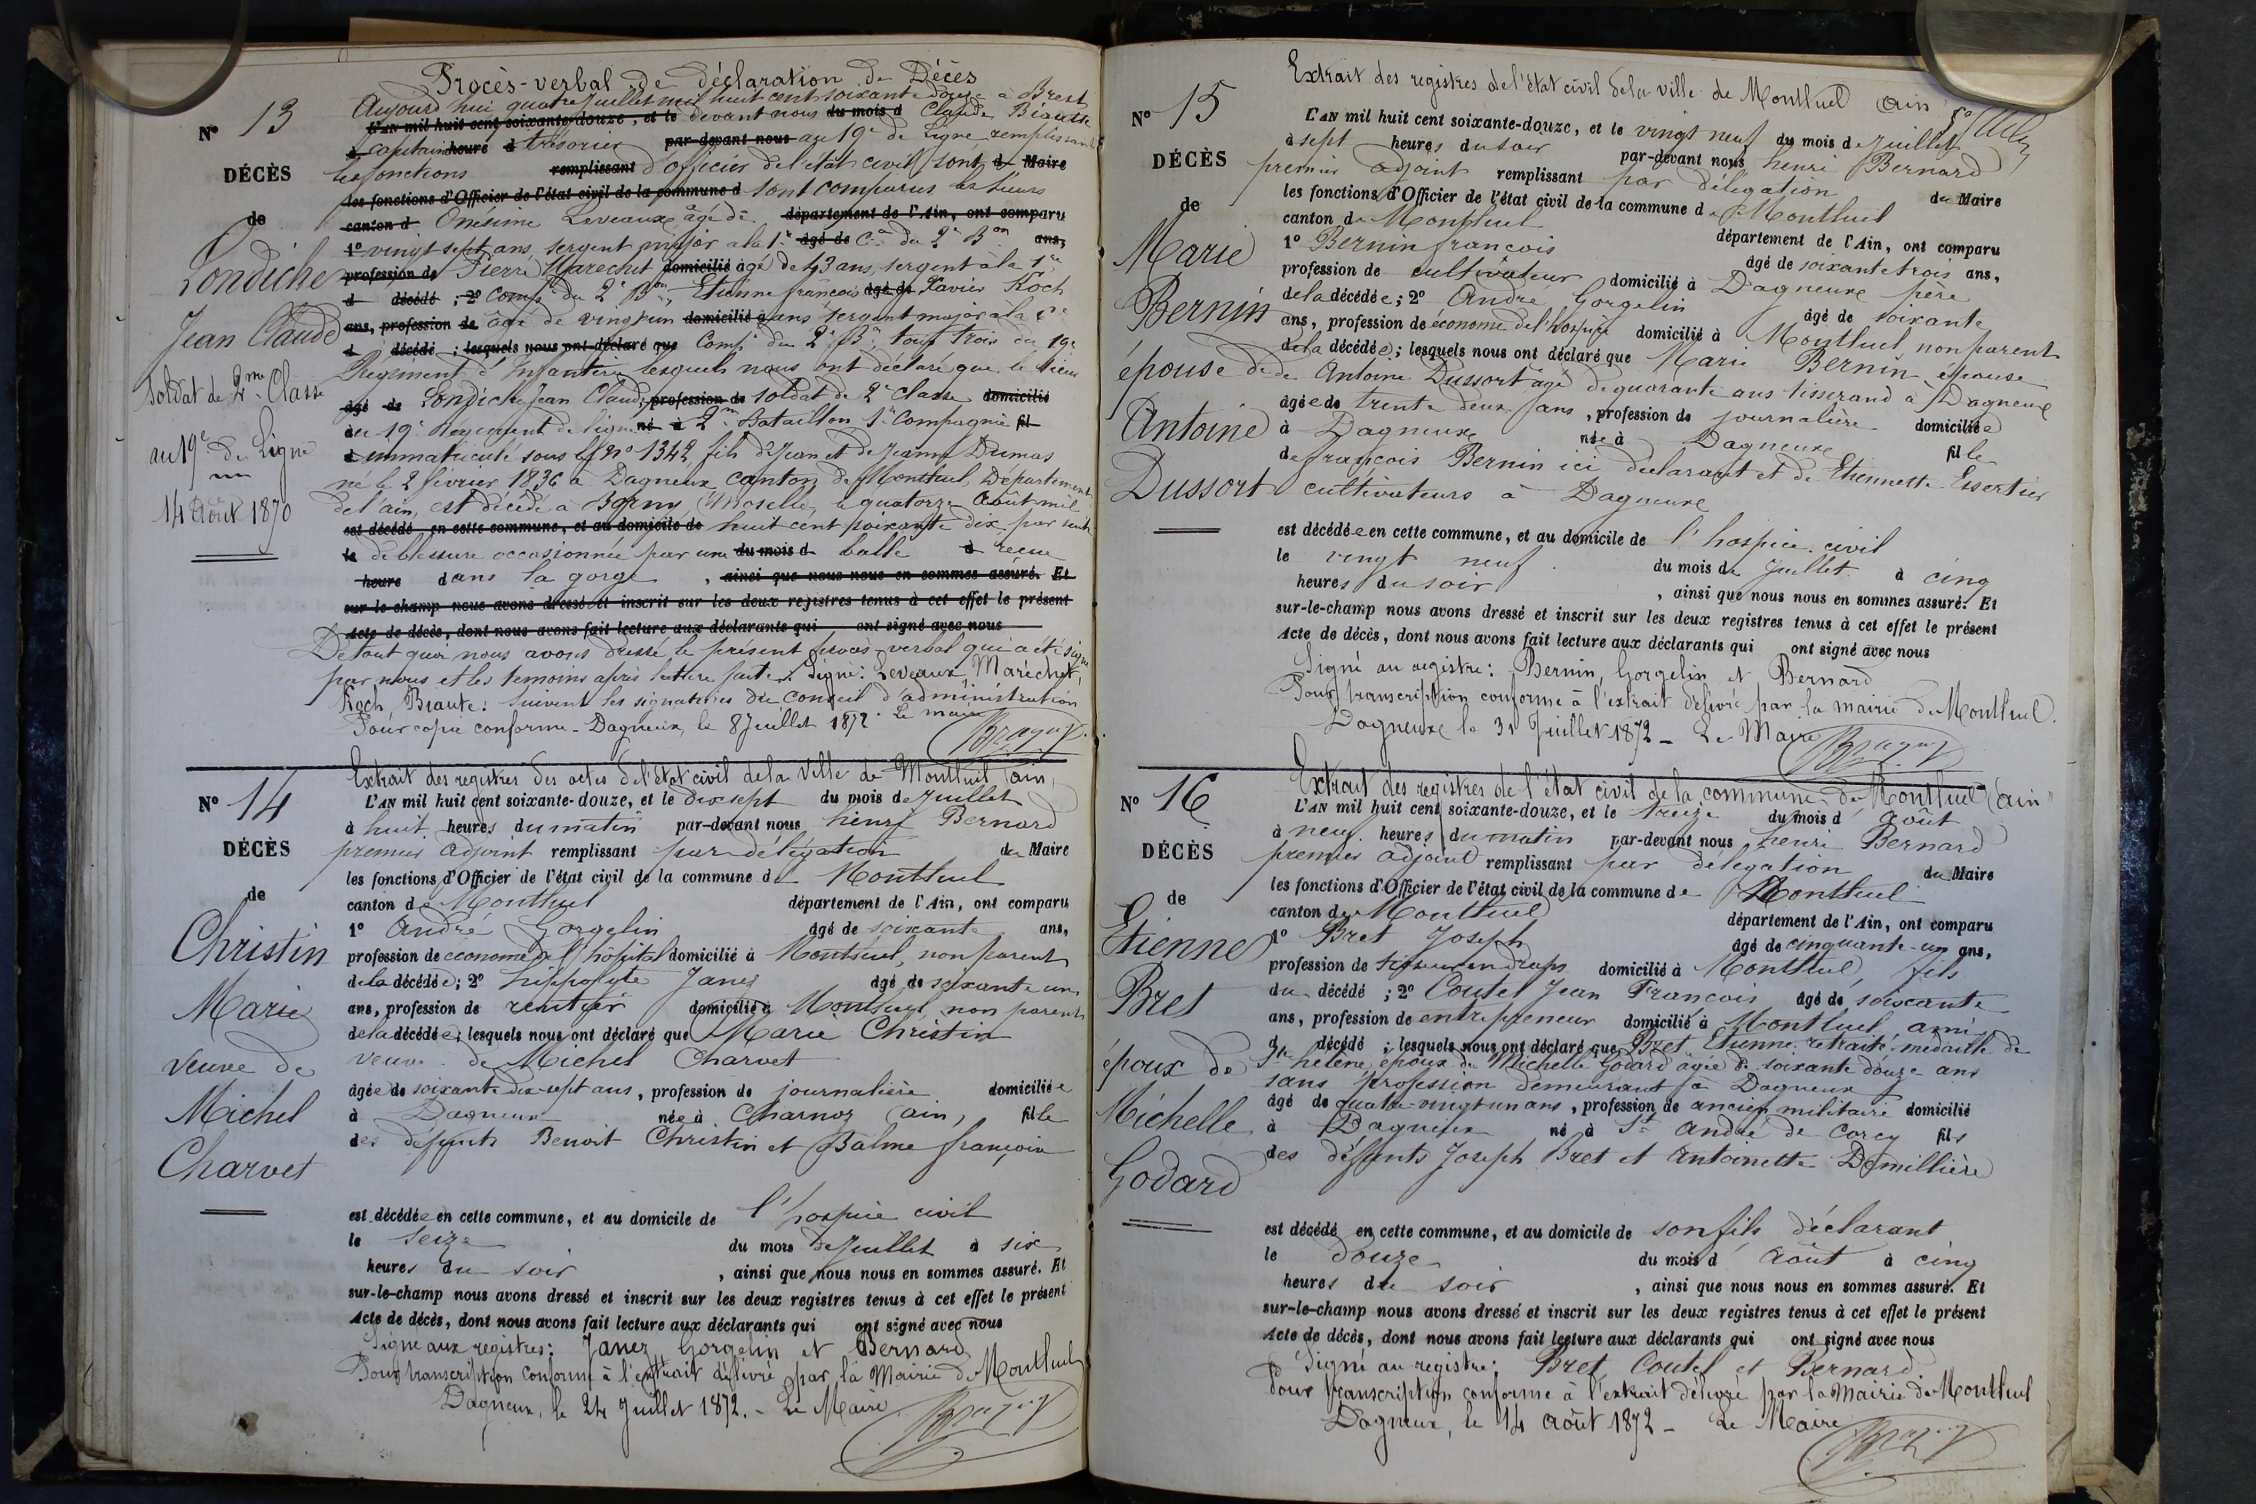 Procès-verbal de déclaration de Décès
N° 13
Aujourd'hui quatre Juillet mil huit cent soixante douze à Brest
L'AN mil huit cent soixante-douze, et le devant nous du mois d Claude Biautte
capitaine heure d trésorier par-devant nous au 19e de Ligne remplissant
DÉCÈS
les fonctions remplissant d'officier de l'état civil sont d Maire
les fonctions d'Officier de l'état civil de la commune d sont comparus les sieurs
de
canton d Onésime Leveaux âgé de département de l'Ain, ont comparu
1° vingt sept ans, sergent major à la 1re âgé de Cie du 2e Bon ans,
Londiche
profession de Pierre Marechet domicilié âgé de 43 ans, sergent à la 1re
d décédé ; 2° Comp. du 2e Bon, Etienne françois âgé de Xavier Koch
Jean Claude
ans, profession de âgé de vingt un domicilié à ans sergent major à la
d décédé ; lesquels nous ont déclaré que Comp. du 2e Bn, tous trois du 19e
Soldat de 2me Classe
Régiment d'Infanterie lesquels nous ont déclaré que le sieur
âgé de Londiche Jean Claude profession de soldat de 2e classe domicilié
au 19e de Ligne
au 19e Régiment de ligne né à 2me Bataillon 1re Compagnie fil
immatriculé sous le No 1342 fils de Jean et de Jeanne Dumas
né le 2 février 1836 à Dagneux, canton de Montluel, Département
14 Août 1870
de l'ain, est décédé à Borny (Moselle) le quatorze Août mil
est décédé en cette commune, et au domicile de huit cent soixante dix par suite
le de blessure occasionnée par une du mois d balle à reçue
heure dans la gorge , ainsi que nous nous en sommes assuré. Et
sur-le-champ nous avons dressé et inscrit sur les deux registres tenus à cet effet le présent
Acte de décès, dont nous avons fait lecture aux déclarants qui ont signé avec nous
De tout quoi nous avons dressé le présent procès-verbal qui a été signé
par nous et les témoins après lecture faite. Signé: Leveaux, Maréchet,
Koch, Biaute. Suivent les signatures du Conseil d'administration
Pour copie conforme - Dagneux, le 8 Juillet 1872. Le maire
Extrait des registres des actes de l'état civil de la Ville de Montluel (ain)
N° 14
L'AN mil huit cent soixante-douze, et le dix sept du mois de Juillet
à huit heures du matin par-devant nous henri Bernard
DÉCÈS
premier adjoint remplissant par délégation du Maire
les fonctions d'Officier de l'état civil de la commune de Montluel
de
canton de Montluel département de l'Ain, ont comparu
1° André Gorgelin âgé de soixante ans,
Christin
profession de econome de l'hôpital domicilié à Montluel, non parent
de la décédée; 2° hippolyte Janez âgé de soixante un
Marie
ans, profession de rentier domicilié à Montluel non parent
de la décédée; lesquels nous ont déclaré que Marie Christin
veuve de
veuve de Michel Charvet
Michel
âgée de soixante dix-sept ans, profession de journalière domiciliée
à Dagneux née à Charnoz (ain) fille
Charvet
des défunts Benoit Christin et Balme françoise
est décédée en cette commune, et au domicile de l'hospice civil
le seize du mois de Juillet à six
heures du soir , ainsi que nous nous en sommes assuré. Et
sur-le-champ nous avons dressé et inscrit sur les deux registres tenus à cet effet le présent
Acte de décès, dont nous avons fait lecture aux déclarants qui ont signé avec nous
Signé aux registres: Janez, Gorgelin et Bernard
Pour transcription conforme à l'extrait délivré par la Mairie de Montluel
Dagneux, le 24 Juillet 1872. - Le Maire
Extrait des registres de l'état civil de la ville de Montluel (ain)
N° 15
L'AN mil huit cent soixante-douze, et le vingt neuf du mois de Juillet
à sept heures du soir par-devant nous henri Bernard
DÉCÈS
premier adjoint remplissant par délégation du Maire
les fonctions d'Officier de l'état civil de la commune de Montluel
de
canton de Montluel département de l'Ain, ont comparu
Marie
1° Bernin françois âgé de soixante trois ans,
profession de cultivateur domicilié à Dagneux père
Bernin
de la décédée; 2° André Gorgelin âgé de soixante
ans, profession de économe de l'hospice domicilié à Montluel non parent
de la décédée; lesquels nous ont déclaré que Marie Bernin épouse
épouse de
de Antoine Dussort âgé de quarante ans tisserand à Dagneux
âgée de trente deux ans, profession de journalière domiciliée
Antoine
à Dagneux née à Dagneux fille
de françois Bernin ici déclarant et de Etiennette Lisertier
Dussort
cultivateurs à Dagneux
est décédée en cette commune, et au domicile de l'hospice civil
le vingt neuf du mois de Juillet à cinq
heures du soir , ainsi que nous nous en sommes assuré. Et
sur-le-champ nous avons dressé et inscrit sur les deux registres tenus à cet effet le présent
Acte de décès, dont nous avons fait lecture aux déclarants qui ont signé avec nous
Signé au registre: Bernin, Gorgelin et Bernard
Pour transcription conforme à l'extrait délivré par la mairie de Montluel.
Dagneux le 31 Juillet 1872 - Le Maire
Extrait des registres de l'état civil de la commune de Montluel (ain)
N° 16
L'AN mil huit cent soixante-douze, et le treize du mois d'août
à neuf heures du matin par-devant nous henri Bernard
DÉCÈS
premier adjoint remplissant par délégation du Maire
les fonctions d'Officier de l'état civil de la commune de Montluel
de
canton de Montluel département de l'Ain, ont comparu
Etienne
1° Bret Joseph âgé de cinquante-un ans,
profession de tisseur en draps domicilié à Montluel, fils
Bret
du décédé ; 2° Coutel Jean François âgé de soixante
ans, profession de entrepreneur domicilié à Montluel ami
d décédé ; lesquels nous ont déclaré que Bret Etienne retraité médaillé de
époux de
Ste hélène époux de Michelle Godard âgée de soixante douze ans
sans profession demeurant à Dagneux
Michelle
âgé de quatre-vingt un ans, profession de ancien militaire domicilié
à Dagneux né à St André de Corcy fils
Godard
des défunts Joseph Bret et Antoinette Demillière
est décédé en cette commune, et au domicile de son fils déclarant
le douze du mois d'août à cinq
heures du soir , ainsi que nous nous en sommes assuré. Et
sur-le-champ nous avons dressé et inscrit sur les deux registres tenus à cet effet le présent
Acte de décès, dont nous avons fait lecture aux déclarants qui ont signé avec nous
Signé au registre: Bret, Coutel et Bernard.
Pour transcription conforme à l'extrait délivré par la Mairie de Montluel
Dagneux, le 14 août 1872 - Le Maire